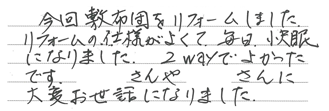 今回敷布団をリフォームしました.
リフォームの仕様がよくて、毎日、快眠
になりました. 2wayでよかった
です. さんや さんに
大変お世話になりました.